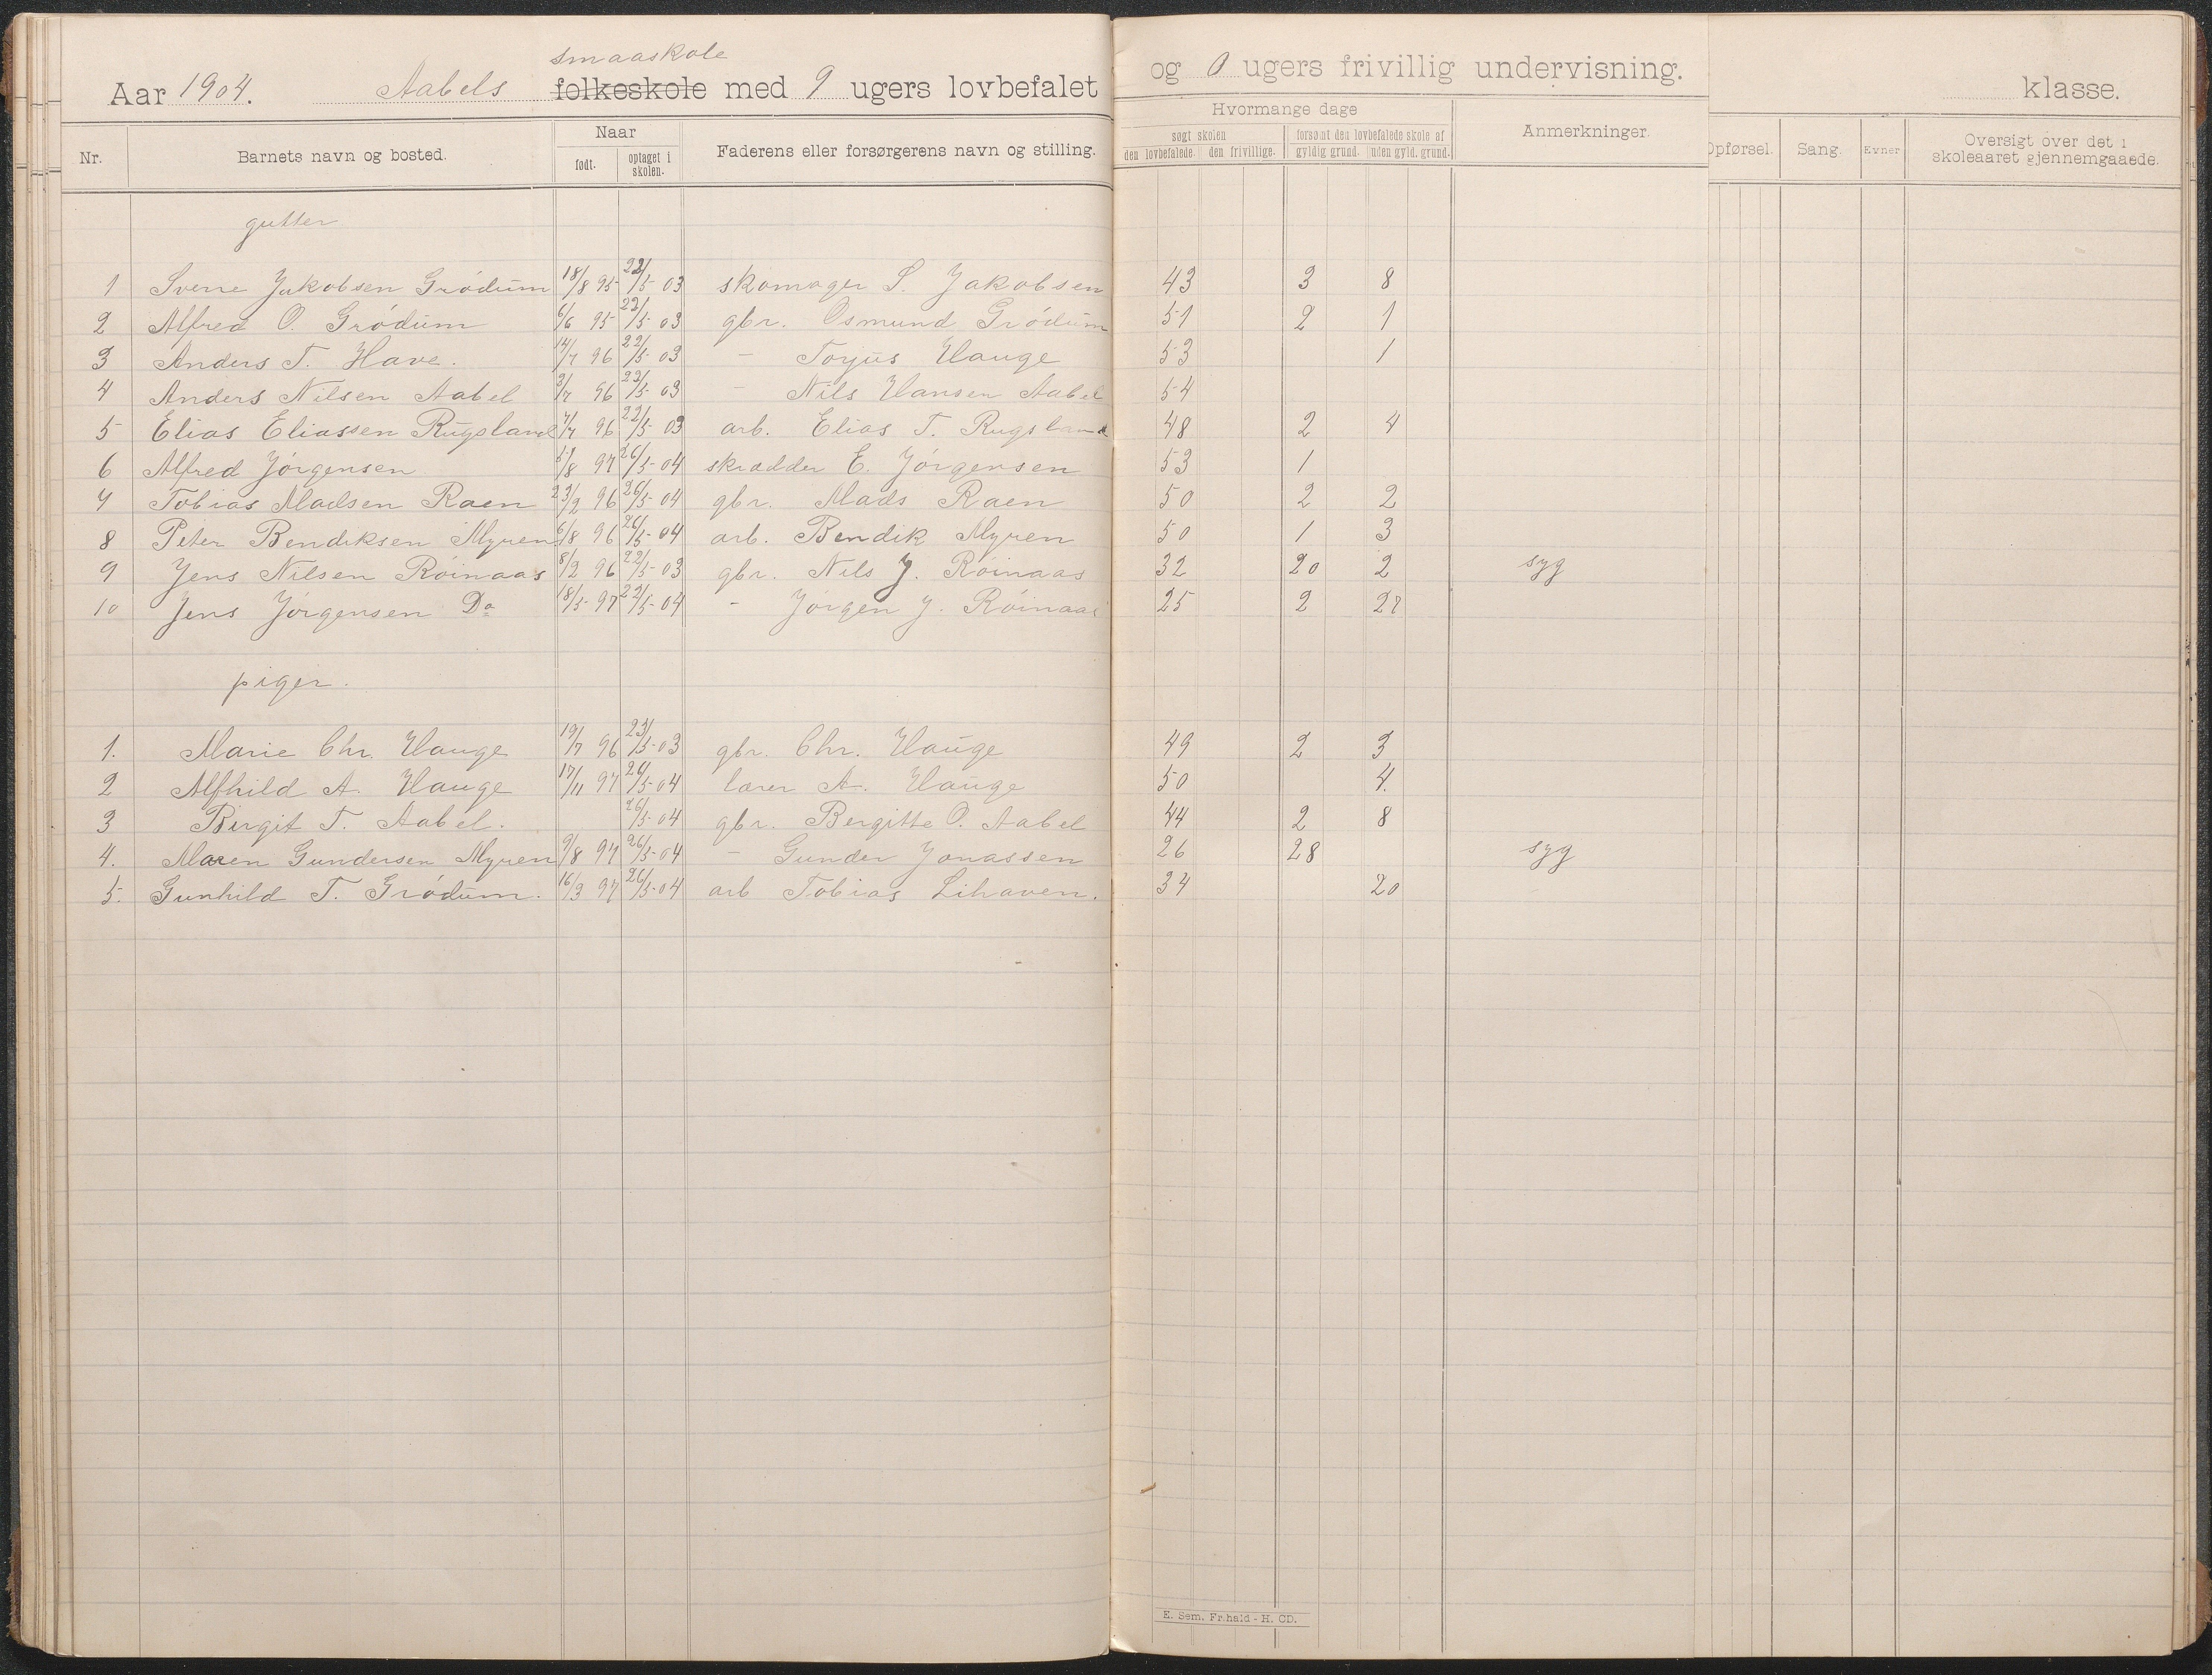 smaaskole
Aar 1904. Aabels folkeskole med 9 ugers lovbefalet og 0 ugers frivillig undervisning. klasse.
Nr. Barnets navn og bosted. Naar født. optaget i skolen. Faderens eller forsørgerens navn og stilling. Hvormange dage søgt skolen den lovbefalede. den frivillige. forsømt den lovbefalede skole af gyldig grund. uden gyld. grund. Anmerkninger. Opførsel. Sang. Evner Oversigt over det i skoleaaret gjennemgaaede.
gutter
1 Sverre Jakobsen Grödum 18/8 95 22/5 03 skomager S. Jakobsen 43 3 8
2 Alfred O. Grödum 6/6 95 22/5 03 gbr. Osmund Grödum 51 2 1
3 Anders T. Have. 14/7 96 22/5 03 - Torjus Hauge 53 1
4 Anders Nilsen Aabel 3/7 96 22/5 03 - Nils Hansen Aabel 54
5 Elias Eliassen Rugsland 7/7 96 22/5 03 arb. Elias T. Rugsland 48 2 4
6 Alfred Jörgensen 5/8 97 26/5 04 skrædder E. Jörgensen 53 1
7 Tobias Madsen Raen 23/2 96 26/5 04 gbr. Mads Raen 50 2 2
8 Peter Bendiksen Myren 6/8 96 26/5 04 arb. Bendik Myren 50 1 3
9 Jens Nilsen Röinaas 8/2 96 22/5 03 gbr. Nils J. Röinaas 32 20 2 syg
10 Jens Jörgensen Do 18/5 97 22/5 04 - Jörgen J. Röinaas 25 2 27
piger.
1. Marie Chr. Hauge 19/7 96 23/5 03 gbr. Chr. Hauge 49 2 3
2 Alfhild A. Hauge 17/11 97 26/5 04 lærer A. Hauge 50 4.
3 Birgit T. Aabel. 26/5 04 gbr. Bergitte O. Aabel 44 2 8
4. Maren Gundersen Myren 9/8 97 26/5 04 - Gunder Jonassen 26 28 syg
5. Gunhild T. Grödum. 16/3 97 26/5 04 arb Tobias Lihaven. 34 20
E. Sem, Fr.hald - H. CD.